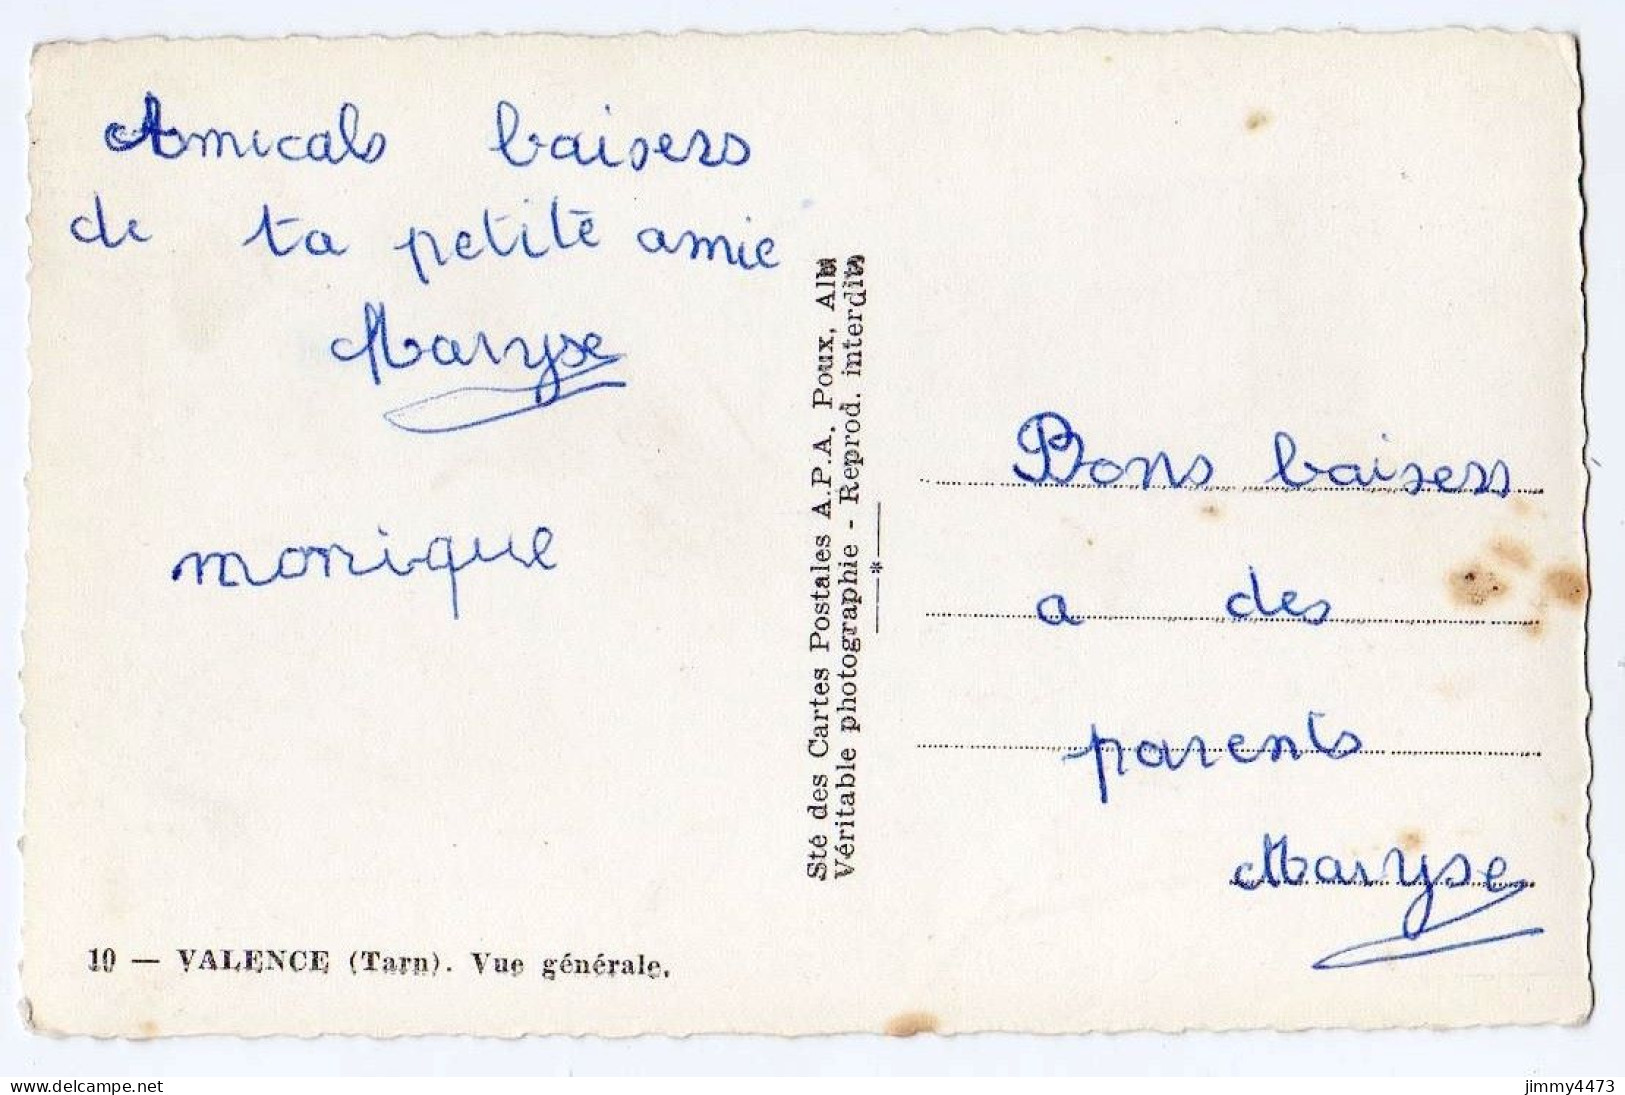 Amicals baisers
de ta petite amie
Maryse
monique
10 — VALENCE (Tarn). Vue générale.
Sté des Cartes Postales A.P.A. Poux, Albi
Véritable photographie - Reprod. interdite
—*—
Bons baisers
a des
parents
Maryse
www.delcampe.net
jimmy4473